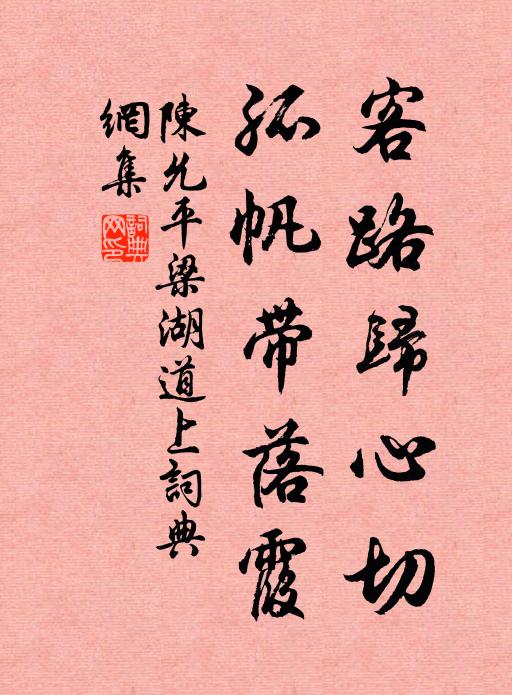 客路歸心切
孤帆帶落霞
陳允平梁湖道上詞典
網集
詞典網印